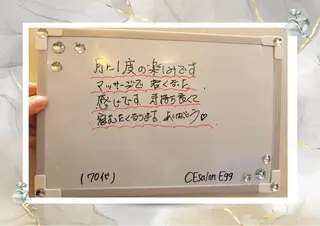 月に1度の楽しみです
マッサージで若くなった
感じです 気持ち良くて
眠たくなります。ありがとう♡
(70代)
CEsalon Egg